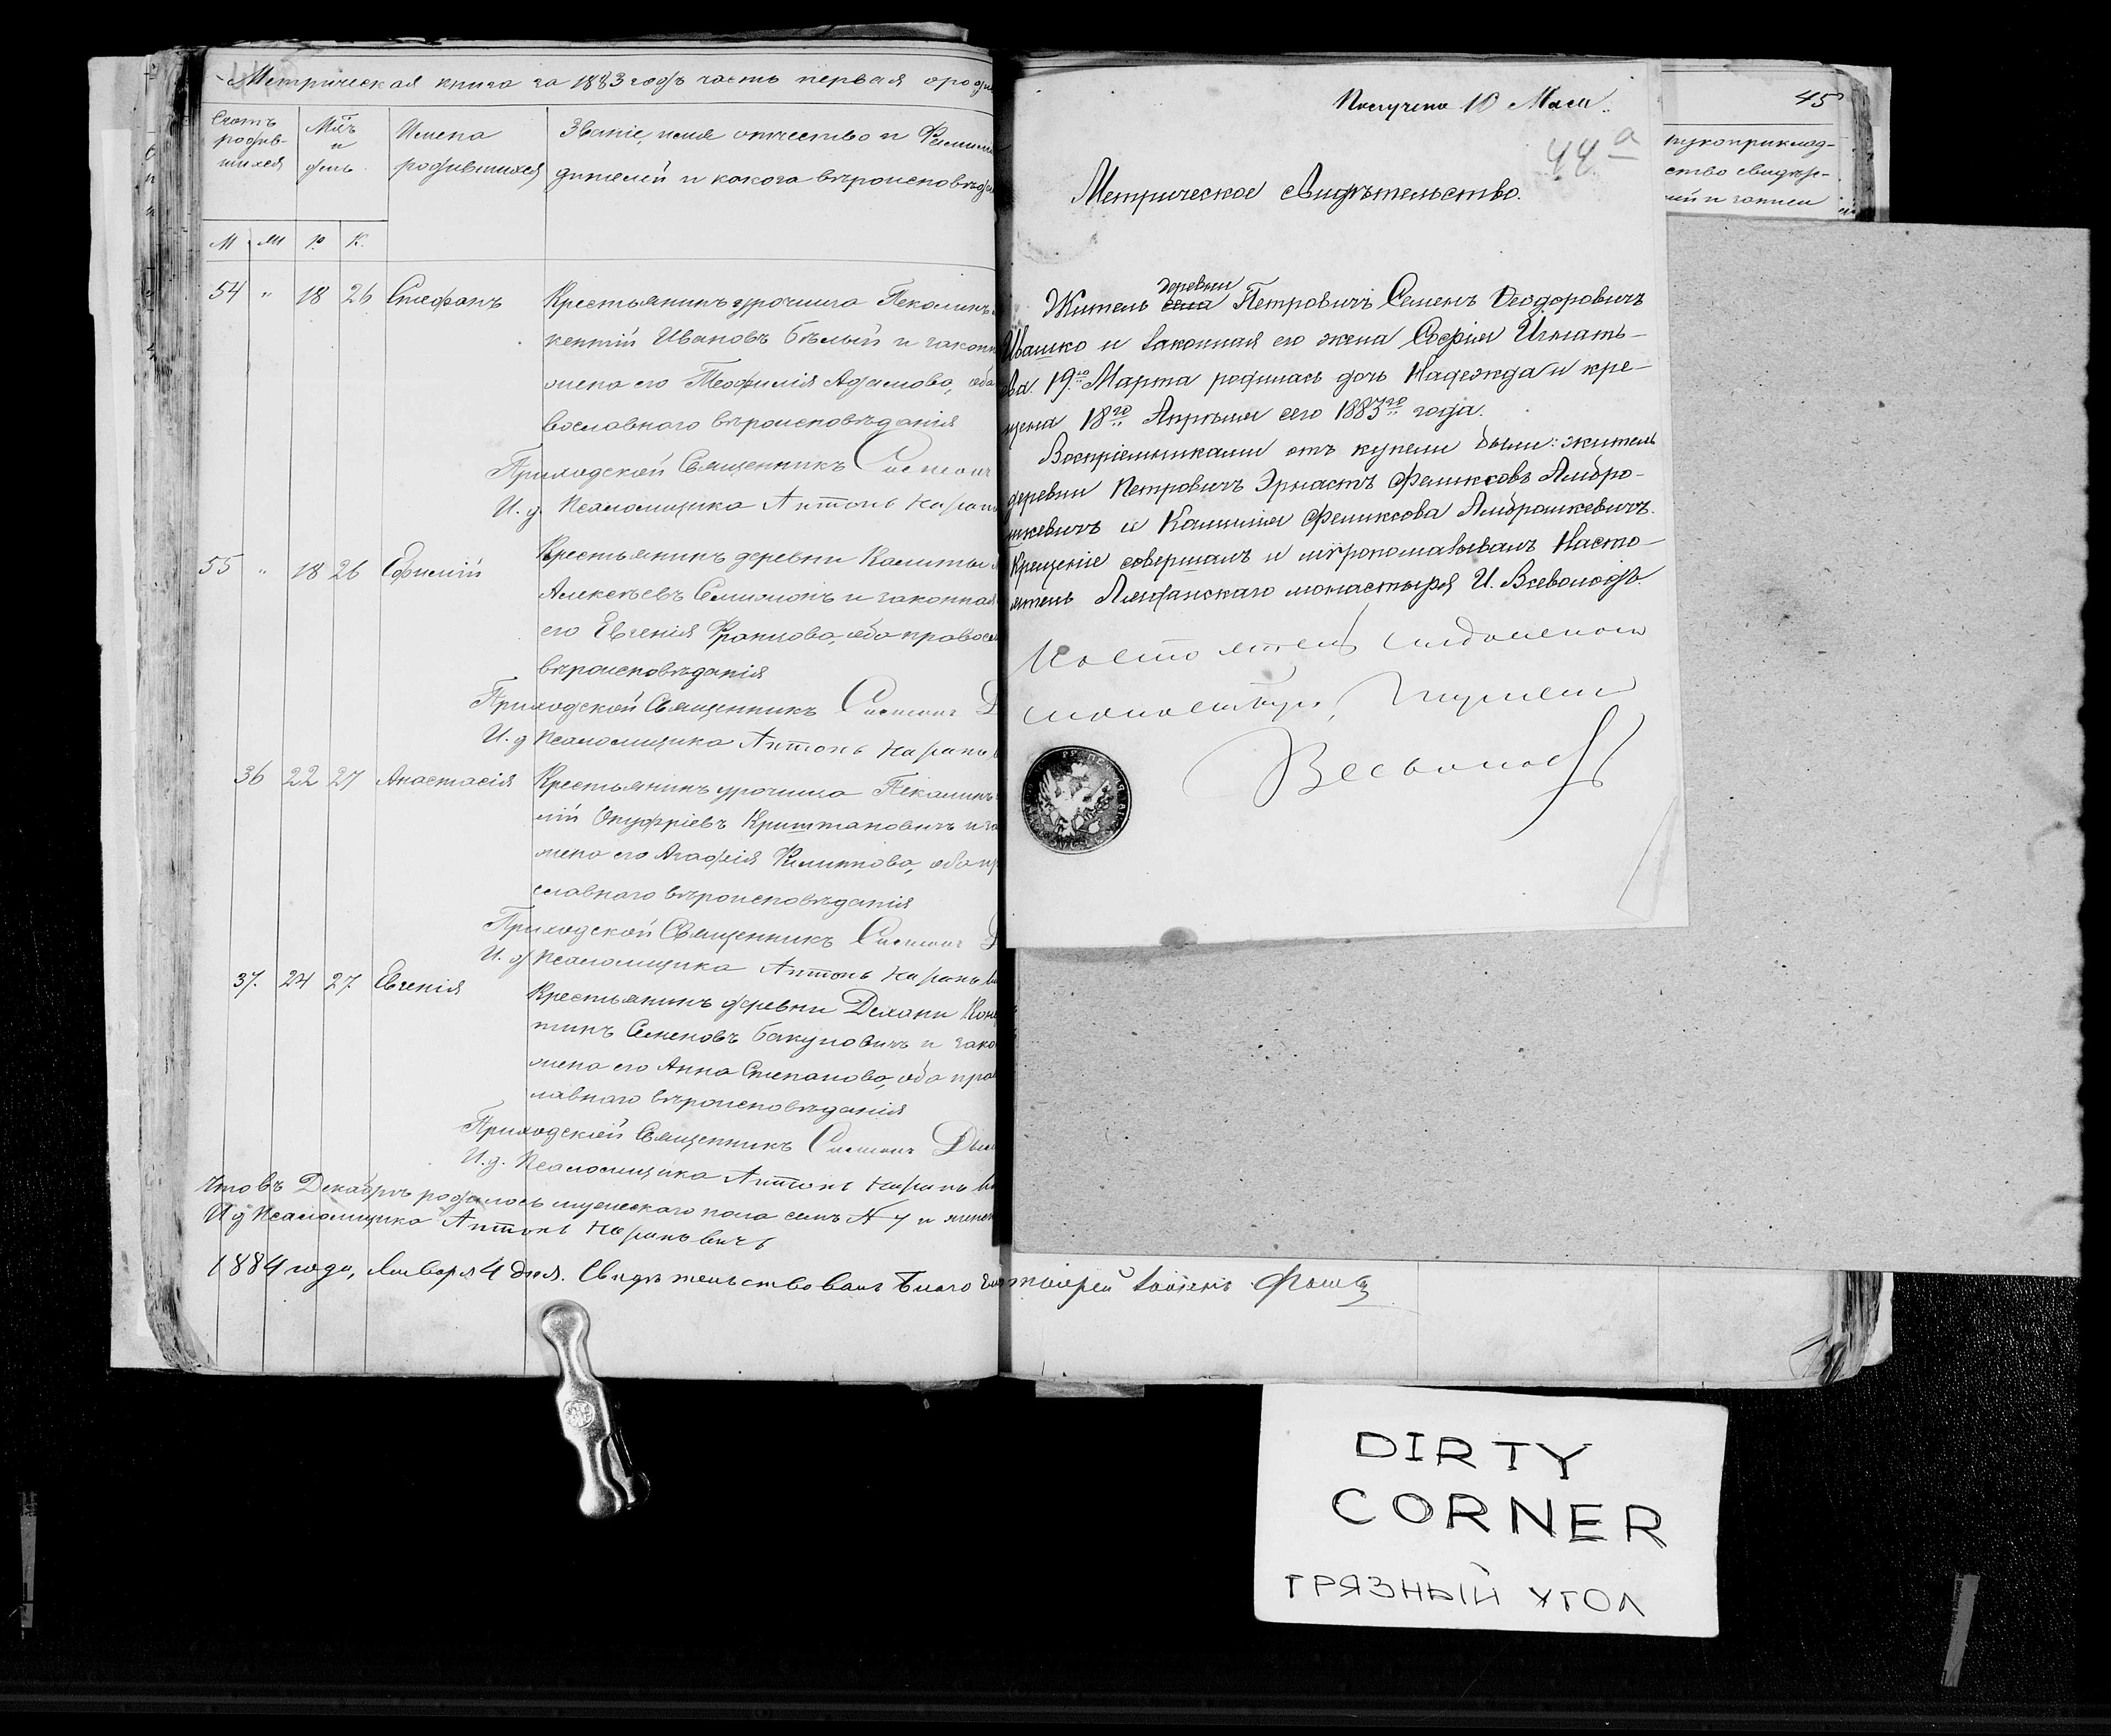 Метрическая книга за 1883 годъ часть первая о родив
Счетъ родив-
шихся
Мцъ
и
день
Имена
родившихся
Званіе, имя отчество и Фамилія
дителей и какого вѣроисповѣдан
М м р. К.
54 " 18 26 Стефанъ Крестьянинъ урочища Пекалинъ
кентій Ивановъ Бѣлый и законн
жена его Теофилія Адамова, оба
вославнаго вѣроисповѣданія
Приходской Священникъ Симеонъ
И. д. Псаломщика Антонъ
55 " 18 26 Ефимій Крестьянинъ деревни
Алексѣевъ и законная
его Евгенія Францова, оба правосл
вѣроисповѣданія
Приходской Священникъ Симеонъ
И. д. Псаломщика Антонъ
36 22 27 Анастасія Крестьянинъ урочища Пекалинъ
лій Онуфріевъ Криштановичъ и за
жена его Агафія Филиппова, оба пр
славнаго вѣроисповѣданія
Приходской Священникъ Симеонъ
И. д. Псаломщика Антонъ
37. 24 27. Евгенія Крестьянинъ деревни
тинъ Семеновъ Бакуновичъ и зако
жена его Анна Степанова, оба прав
лавнаго вѣроисповѣданія
Приходской Священникъ Симеонъ
И. д. Псаломщика Антонъ
Что въ Декабрѣ родилось мужескаго пола семь № 7 и женск
И д Псаломщика Антонъ
1884 года, Января 4 дня. Свидѣтельствовалъ
Получено 10 Мая.
44 а
Метрическое Свидѣтельство.
деревни
Житель села Петровичъ Семенъ Ѳеодоровичъ
Ивашко и законная его жена Софія Игнать-
ева. 19го Марта родилась дочь Надежда и кре-
щена 18го Апрѣля сего 1883го года.
Воспріемниками отъ купели были: житель
деревни Петровичъ Эрнастъ Феликсовъ Амбро-
шкевичъ и Камилія Феликсова Амброшкевичъ.
Крещеніе совершалъ и мѵропомазывалъ Насто-
ятель Ляданскаго монастыря И. Всеволодъ.
Настоятель Ляданскаго
монастыря, Игуменъ
Всеволодъ
45
рукоприклад-
ство свидѣте-
лей и записи
DIRTY
CORNER
ГРЯЗНЫЙ УГОЛ